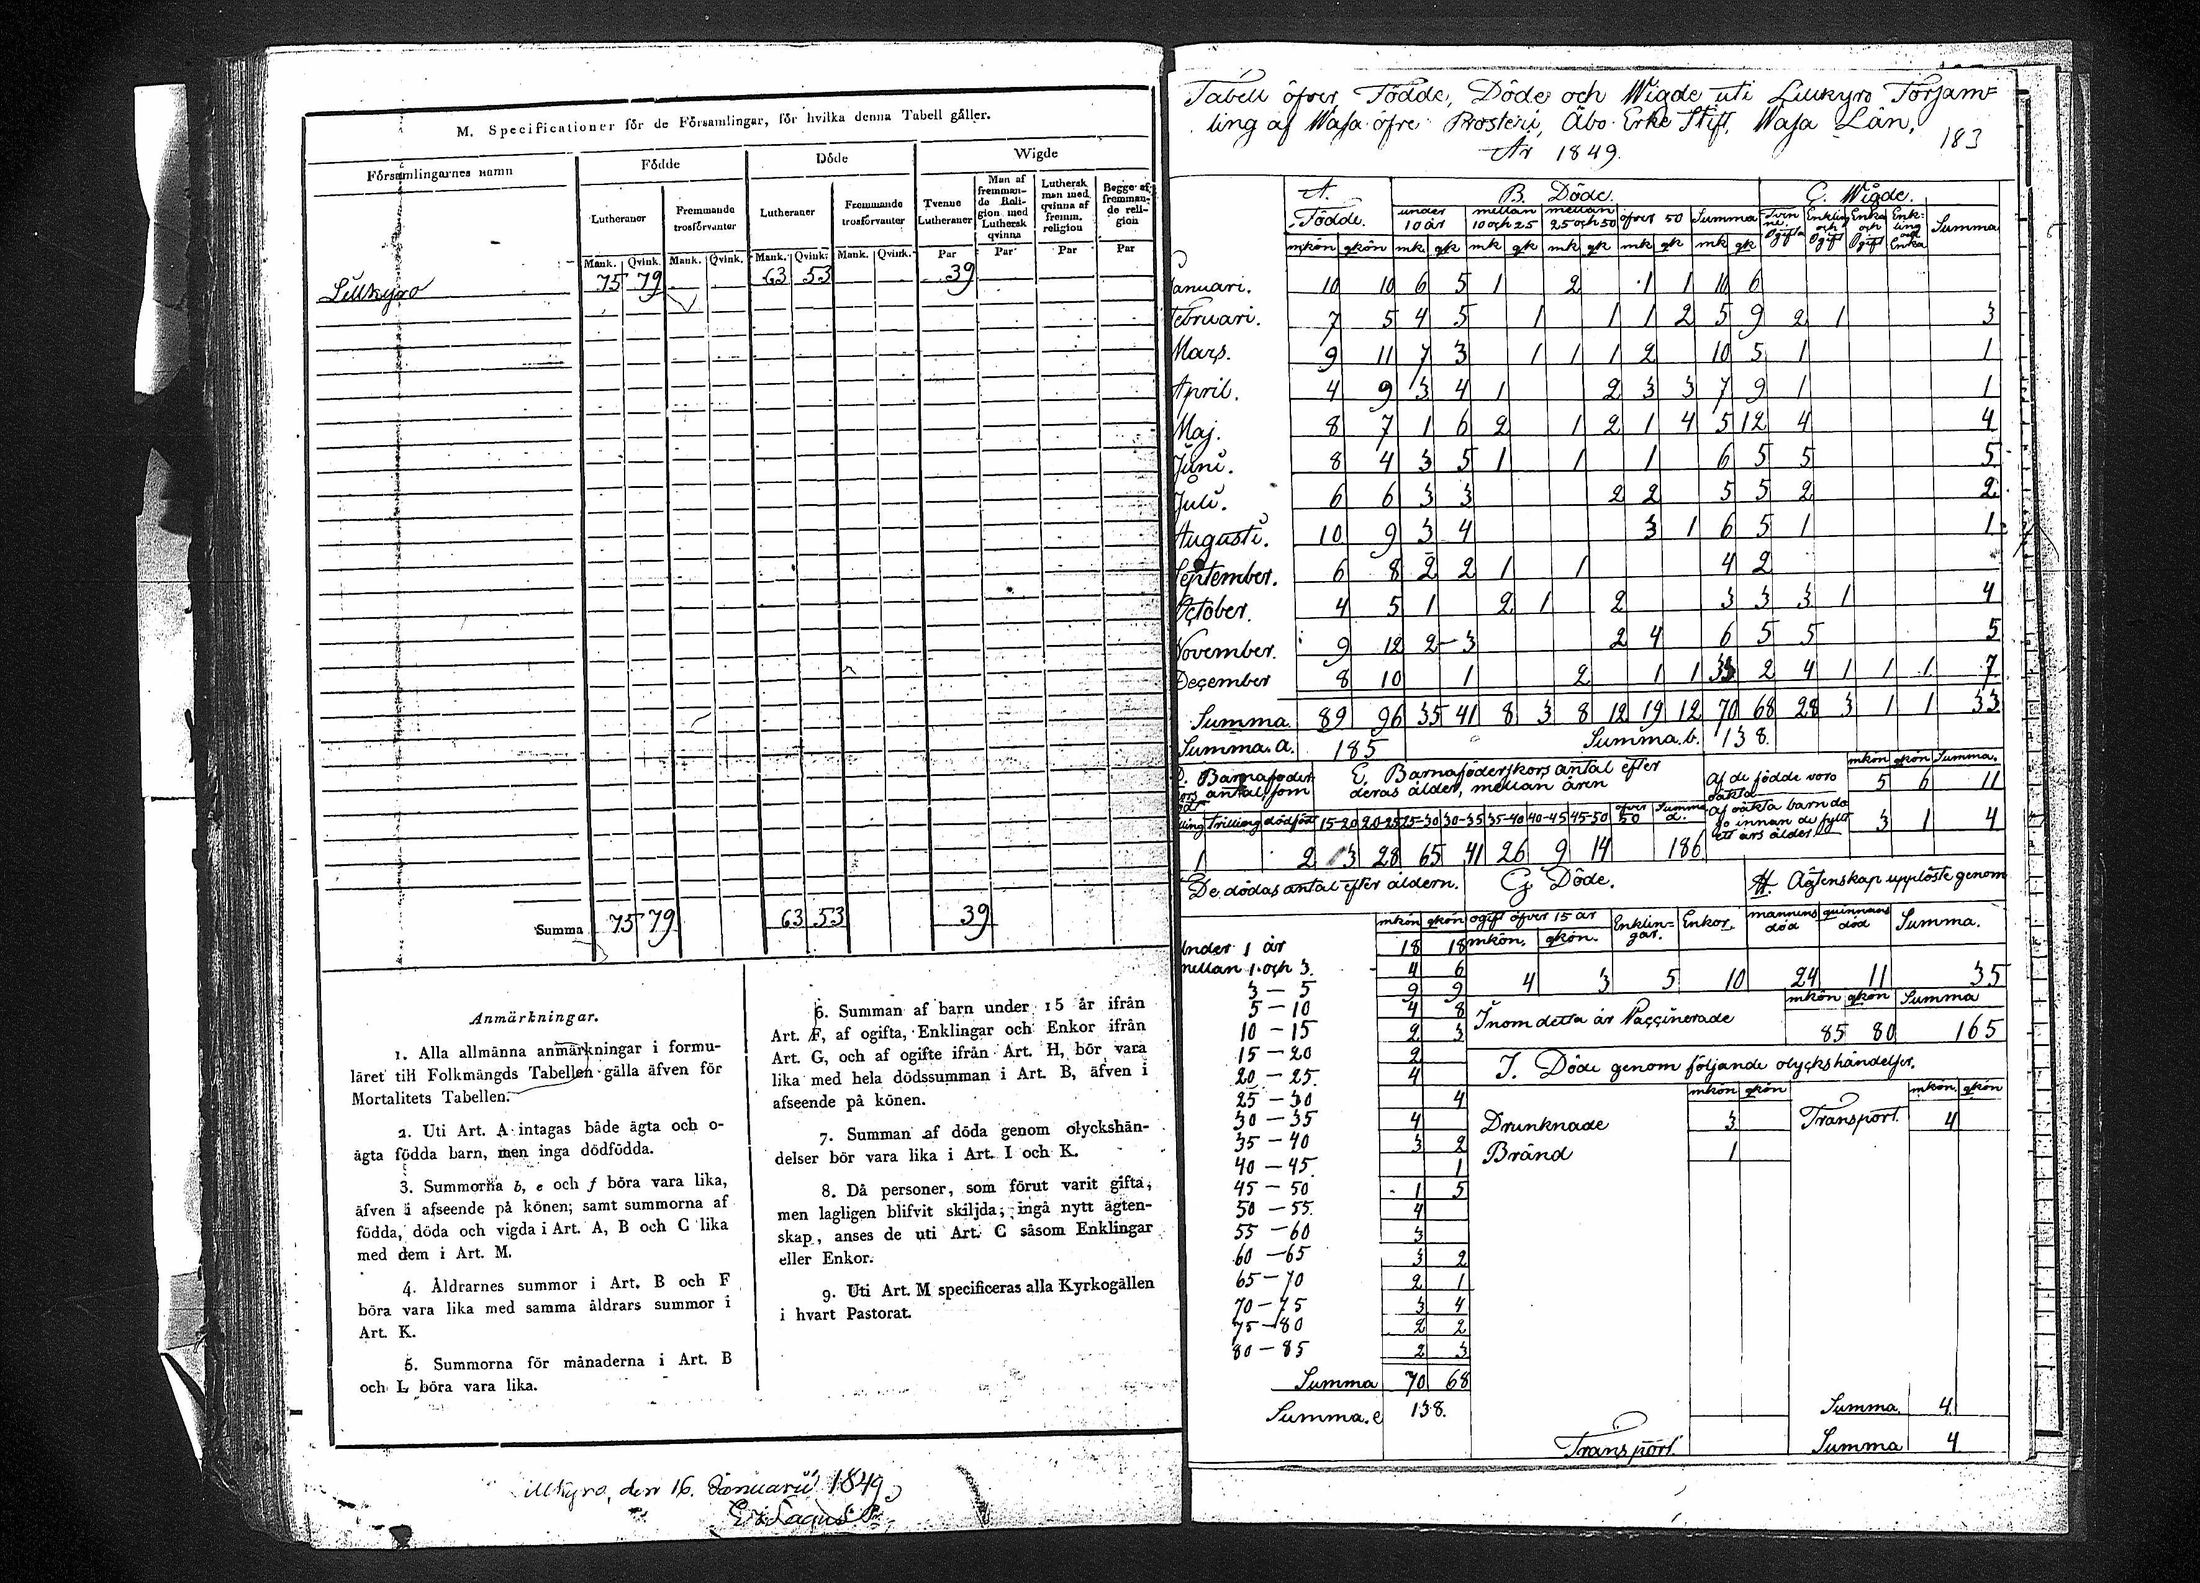 M. Specificationer för de Församlingar, för hvilka denna Tabell gäller.
Församlingarnes namn
Födde
Döde
Wigde
Lutheraner
Fremmande trosförvanter
Lutheraner
Fremmande trosförvanter
Tvenne Lutheraner
Man af fremmande Religion med Luthersk qvinna
Luthersk man med qvinna af fremm. religion
Begge af fremmande religion
Mank. Qvink. Mank. Qvink. Mank. Qvink. Mank. Qvink. Par Par Par Par
Lillkyro 75 79 63 53 39
Summa 75 79 63 53 39
Anmärkningar.
1. Alla allmänna anmärkningar i formu-
läret till Folkmängds Tabellen gälla äfven för
Mortalitets Tabellen.
2. Uti Art. A intagas både ägta och o-
ägta födda barn, men inga dödfödda.
3. Summorna b, e och f böra vara lika,
äfven i afseende på könen; samt summorna af
födda, döda och vigda i Art. A, B och C lika
med dem i Art. M.
4. Åldrarnes summor i Art. B och F
böra vara lika med samma åldrars summor i
Art. K.
5. Summorna för månaderna i Art. B
och L böra vara lika.
6. Summan af barn under 15 år ifrån
Art. F, af ogifta, Enklingar och Enkor ifrån
Art. G, och af ogifte ifrån Art. H, bör vara
lika med hela dödssumman i Art. B, äfven i
afseende på könen.
7. Summan af döda genom olyckshän-
delser bör vara lika i Art. I och K.
8. Då personer, som förut varit gifta,
men lagligen blifvit skiljda, ingå nytt ägten-
skap, anses de uti Art. C såsom Enklingar
eller Enkor.
9. Uti Art. M specificeras alla Kyrkogällen
i hvart Pastorat.
illkyro, den 16. Januarii 1849
Tabell öfver Födde, Döde och Wigde uti Lillkyro Försam=
ling af Wasa öfre Prosteri, Åbo Erke Stift, Wasa Län,
År 1849.
183
A. Födde.
B. Döde.
C. Wigde.
under 10 år
mellan 10 och 25
mellan 25 och 50
öfver 50
Summa
Summa
mkön qkön mk qk mk qk mk qk mk qk mk qk
Januari. 10 10 6 5 1 2 1 1 10 6
Februari. 7 5 4 5 1 1 1 2 5 9 2 1 3
Mars. 9 11 7 3 1 1 1 2 10 5 1 1
April. 4 9 3 4 1 2 3 3 7 9 1 1
Maj. 8 7 1 6 2 1 2 1 4 5 12 4 4
Juni. 8 4 3 5 1 1 1 6 5 5 5
Juli. 6 6 3 3 2 2 5 5 2 2
Augusti. 10 9 3 4 3 1 6 5 1 1
September. 6 8 2 2 1 1 4 2
October. 4 5 1 2 1 2 3 3 3 1 4
November. 9 12 2 3 2 4 6 5 5 5
December 8 10 1 2 1 1 3 2 4 1 1 1 7
Summa. 89 96 35 41 8 3 8 12 19 12 70 68 28 3 1 1 33
Summa. a. 185 Summa. b. 138.
Barnaföder
antal, som
E. Barnaföderskors antal efter
deras ålder, mellan åren
mkön qkön Summa.
Af de födde voro oäkta 5 6 11
Af oäkta barn do
go innan de fyllt
ett års ålder 3 1 4
Trilling dödfödt 15-20 20-25 25-30 30-35 35-40 40-45 45-50 öfver 50 Summa d.
1 2 3 28 65 41 26 9 14 186
De dödas antal efter åldern.
G. Döde.
H. Ägtenskap upplöste genom
mkön qkön ogift öfver 15 år Enklin=gar. Enkor. mannens död quinnans död Summa.
mkön. qkön.
4 3 5 10 24 11 35
Under 1 år 18 18
mellan 1 och 3. 4 6
3 — 5 9 9
5 — 10 4 8
10 — 15 2 3
15 — 20 2
20 — 25. 4
25 — 30 4
30 — 35 4
35 — 40 3 2
40 — 45. 1
45 — 50 1 5
50 — 55. 4
55 — 60 3
60 — 65 3 2
65 — 70 2 1
70 — 75 3 4
75 — 80 2 2
80 — 85 2 3
Summa 70 68
Summa. e 138.
mkön qkön Summa
Inom detta år Vaccinerade 85 80 165
I. Döde genom följande olyckshändelser.
mkön qkön mkön. qkön
Drunknade 3 Transport. 4
Bränd 1
Summa. 4
Transport. Summa 4